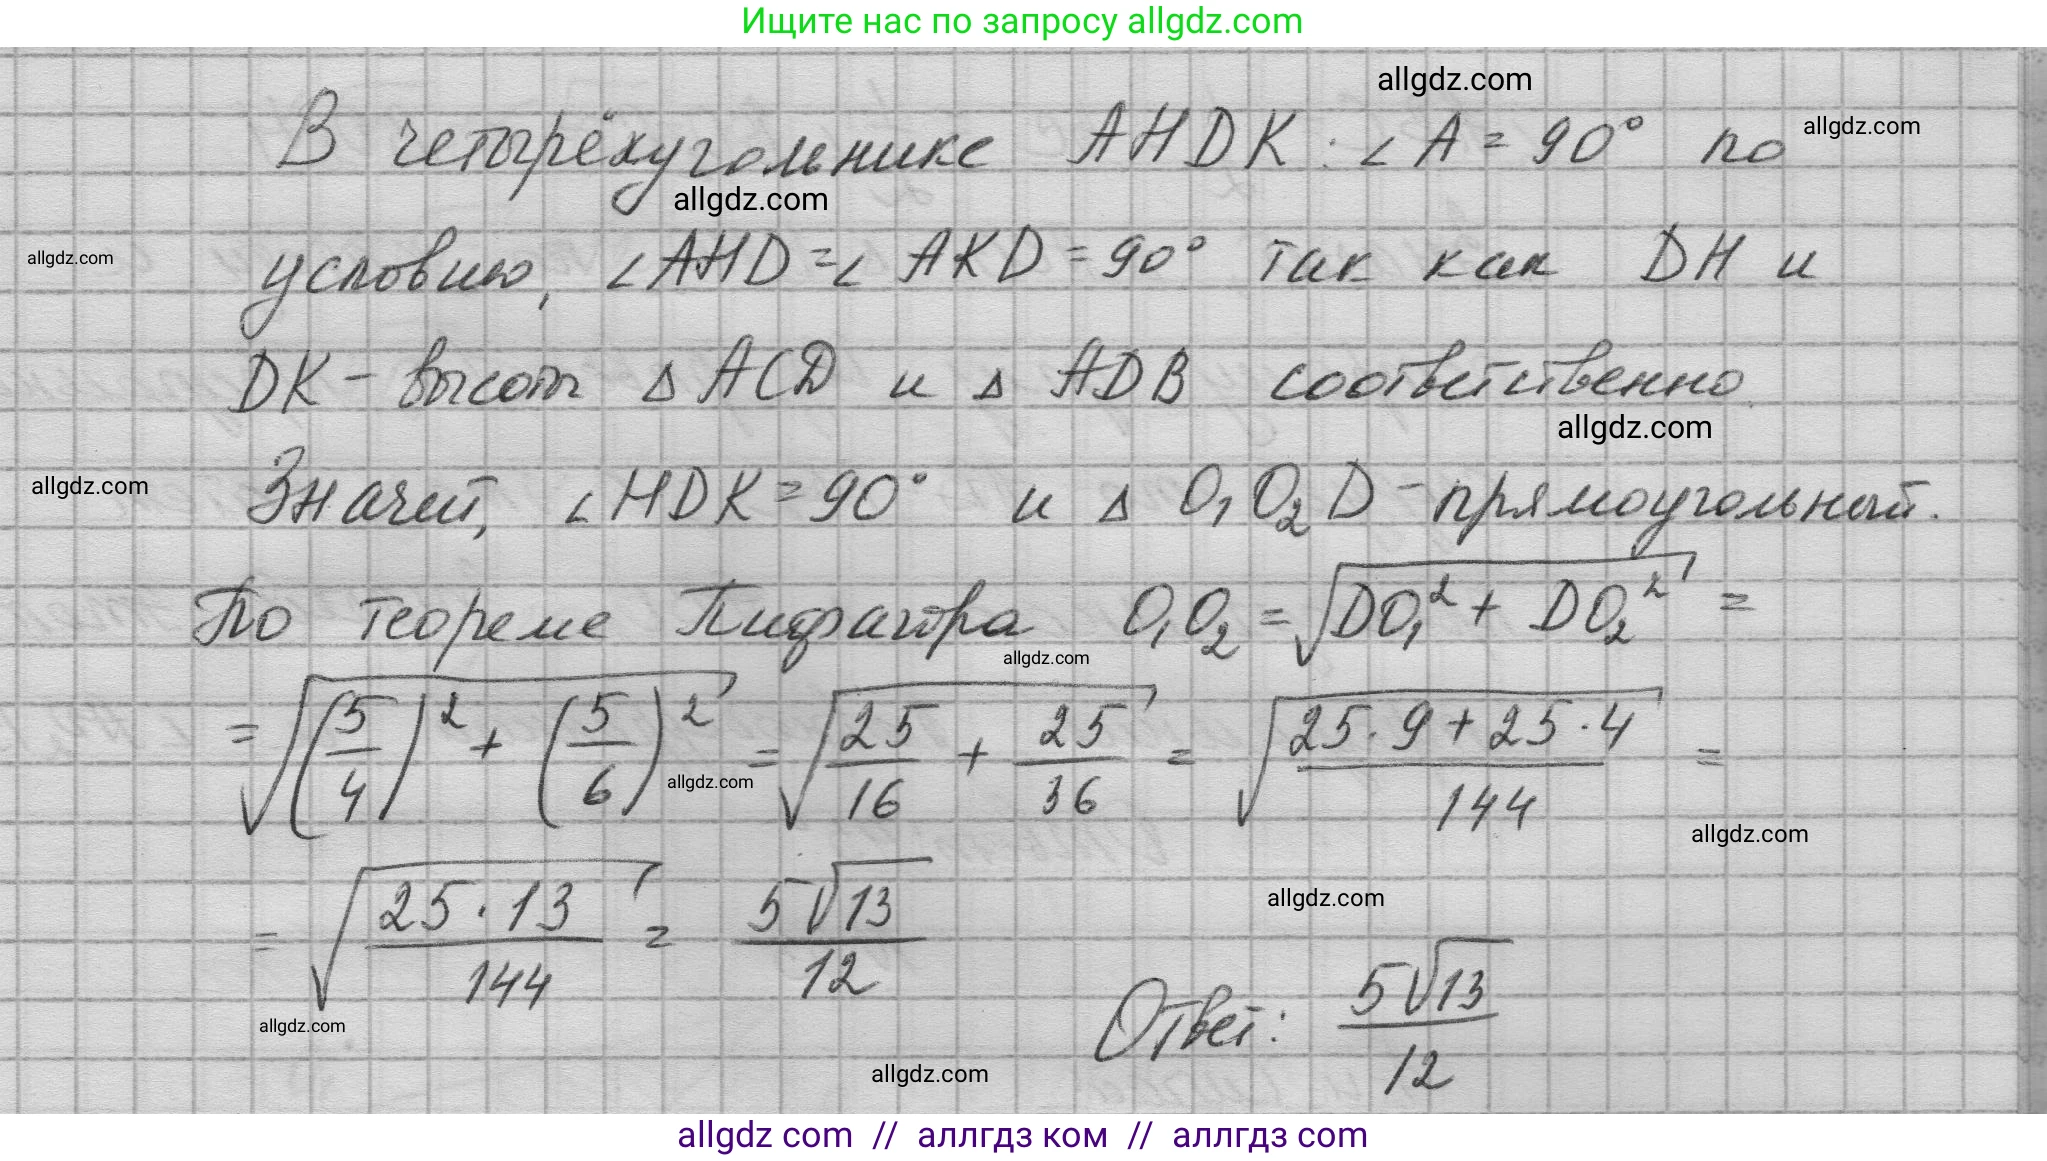 Ищите нас по запросу allgdz.com
allgdz.com
В четырёхугольнике AHDK: ∠A = 90° по
allgdz.com
allgdz.com
allgdz.com
условию, ∠AHD = ∠AKD = 90° так как DH и
DK - высоты △ ACD и △ ADB соответственно.
allgdz.com
allgdz.com
Значит, ∠HDK = 90° и △ O₁O₂D - прямоугольный.
По теореме Пифагора O₁O₂ = √(DO₁² + DO₂²) =
allgdz.com
= √((5/4)² + (5/6)²) = √(25/16 + 25/36) = √((25·9 + 25·4)/144) =
allgdz.com
allgdz.com
= √(25·13/144) = 5√13/12
allgdz.com
allgdz.com
Ответ: 5√13/12
allgdz.com
allgdz com // аллгдз ком // аллгдз com